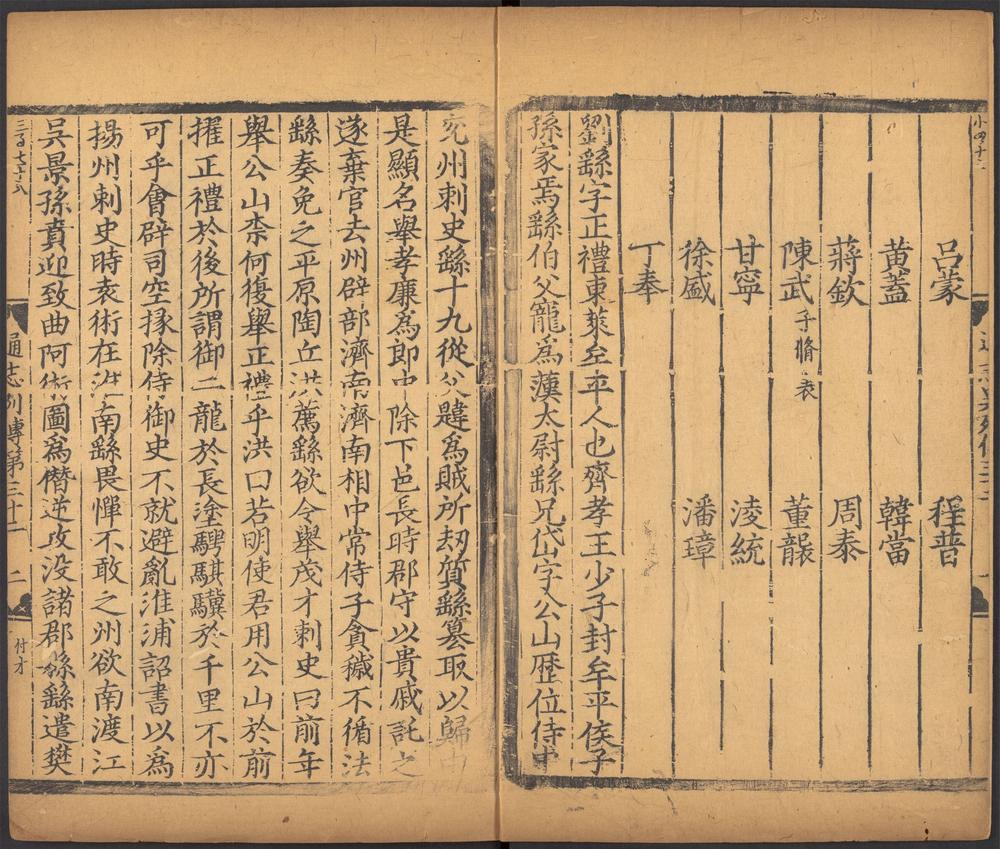 呂蒙 程普
黃蓋 韓當
蔣欽 周泰
陳武子脩 表 董襲
甘寧 淩統
徐盛 潘璋
丁奉
劉繇字正禮東萊牟平人也齊孝王少子封牟平侯子
孫家焉繇伯父寵爲漢太尉繇兄岱字公山歷位侍中
兖州刺史繇十九從父韙爲賊所劫質繇篡取以歸由
是顯名舉孝廉爲郎中除下邑長時郡守以貴戚託之
遂棄官去州辟部濟南濟南相中常侍子貪穢不循法
繇奏免之平原陶丘洪薦繇欲令舉茂才刺史曰前年
舉公山柰何復舉正禮乎洪曰若明使君用公山於前
擢正禮於後所謂御二龍於長塗騁騏驥於千里不亦
可乎會辟司空掾除侍御史不就避亂淮浦詔書以爲
揚州刺史時袁術在淮南繇畏憚不敢之州欲南渡江
吳景孫賁迎致曲阿術圖爲僭逆攻没諸郡縣繇遣樊
通志列傳第三十一 二 付才